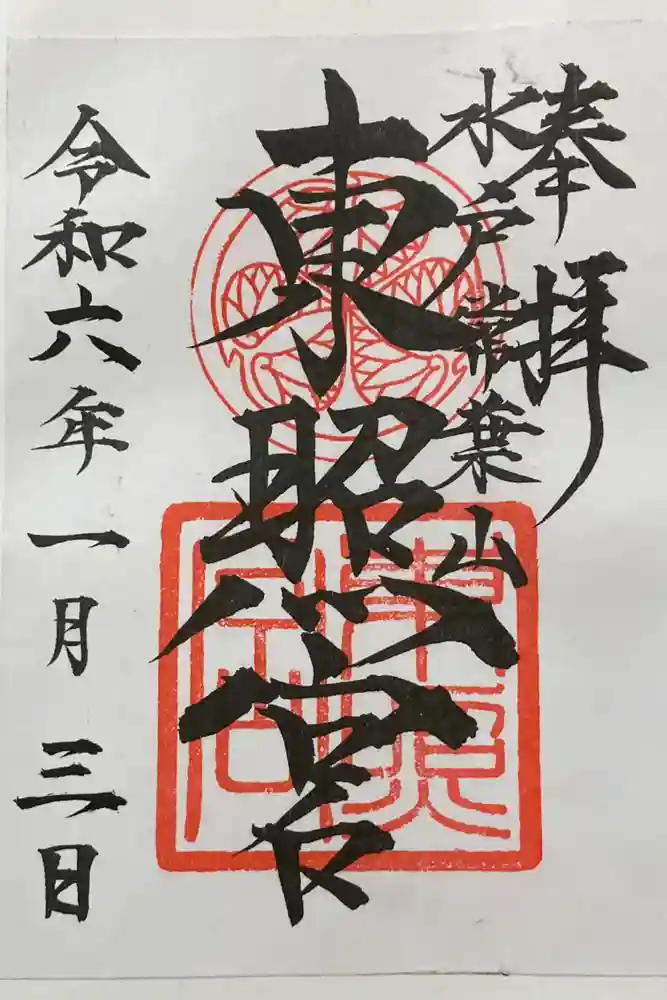 奉拝
水戸常葉山
東照宮
令和六年一月三日